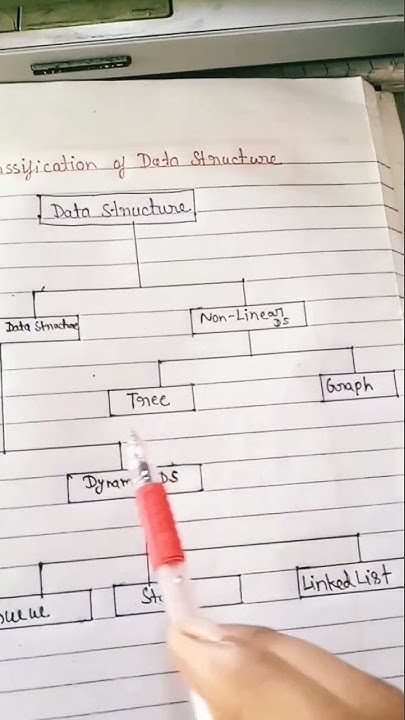 ssification of Data Structure
Data Structure
Data Structure
Non-Linear
DS
Tree
Graph
Dynam DS
Linked List